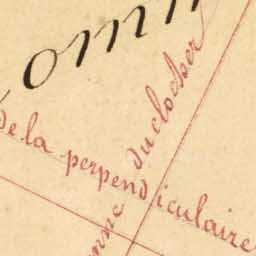 omm
de la perpendiculaire
du clocher